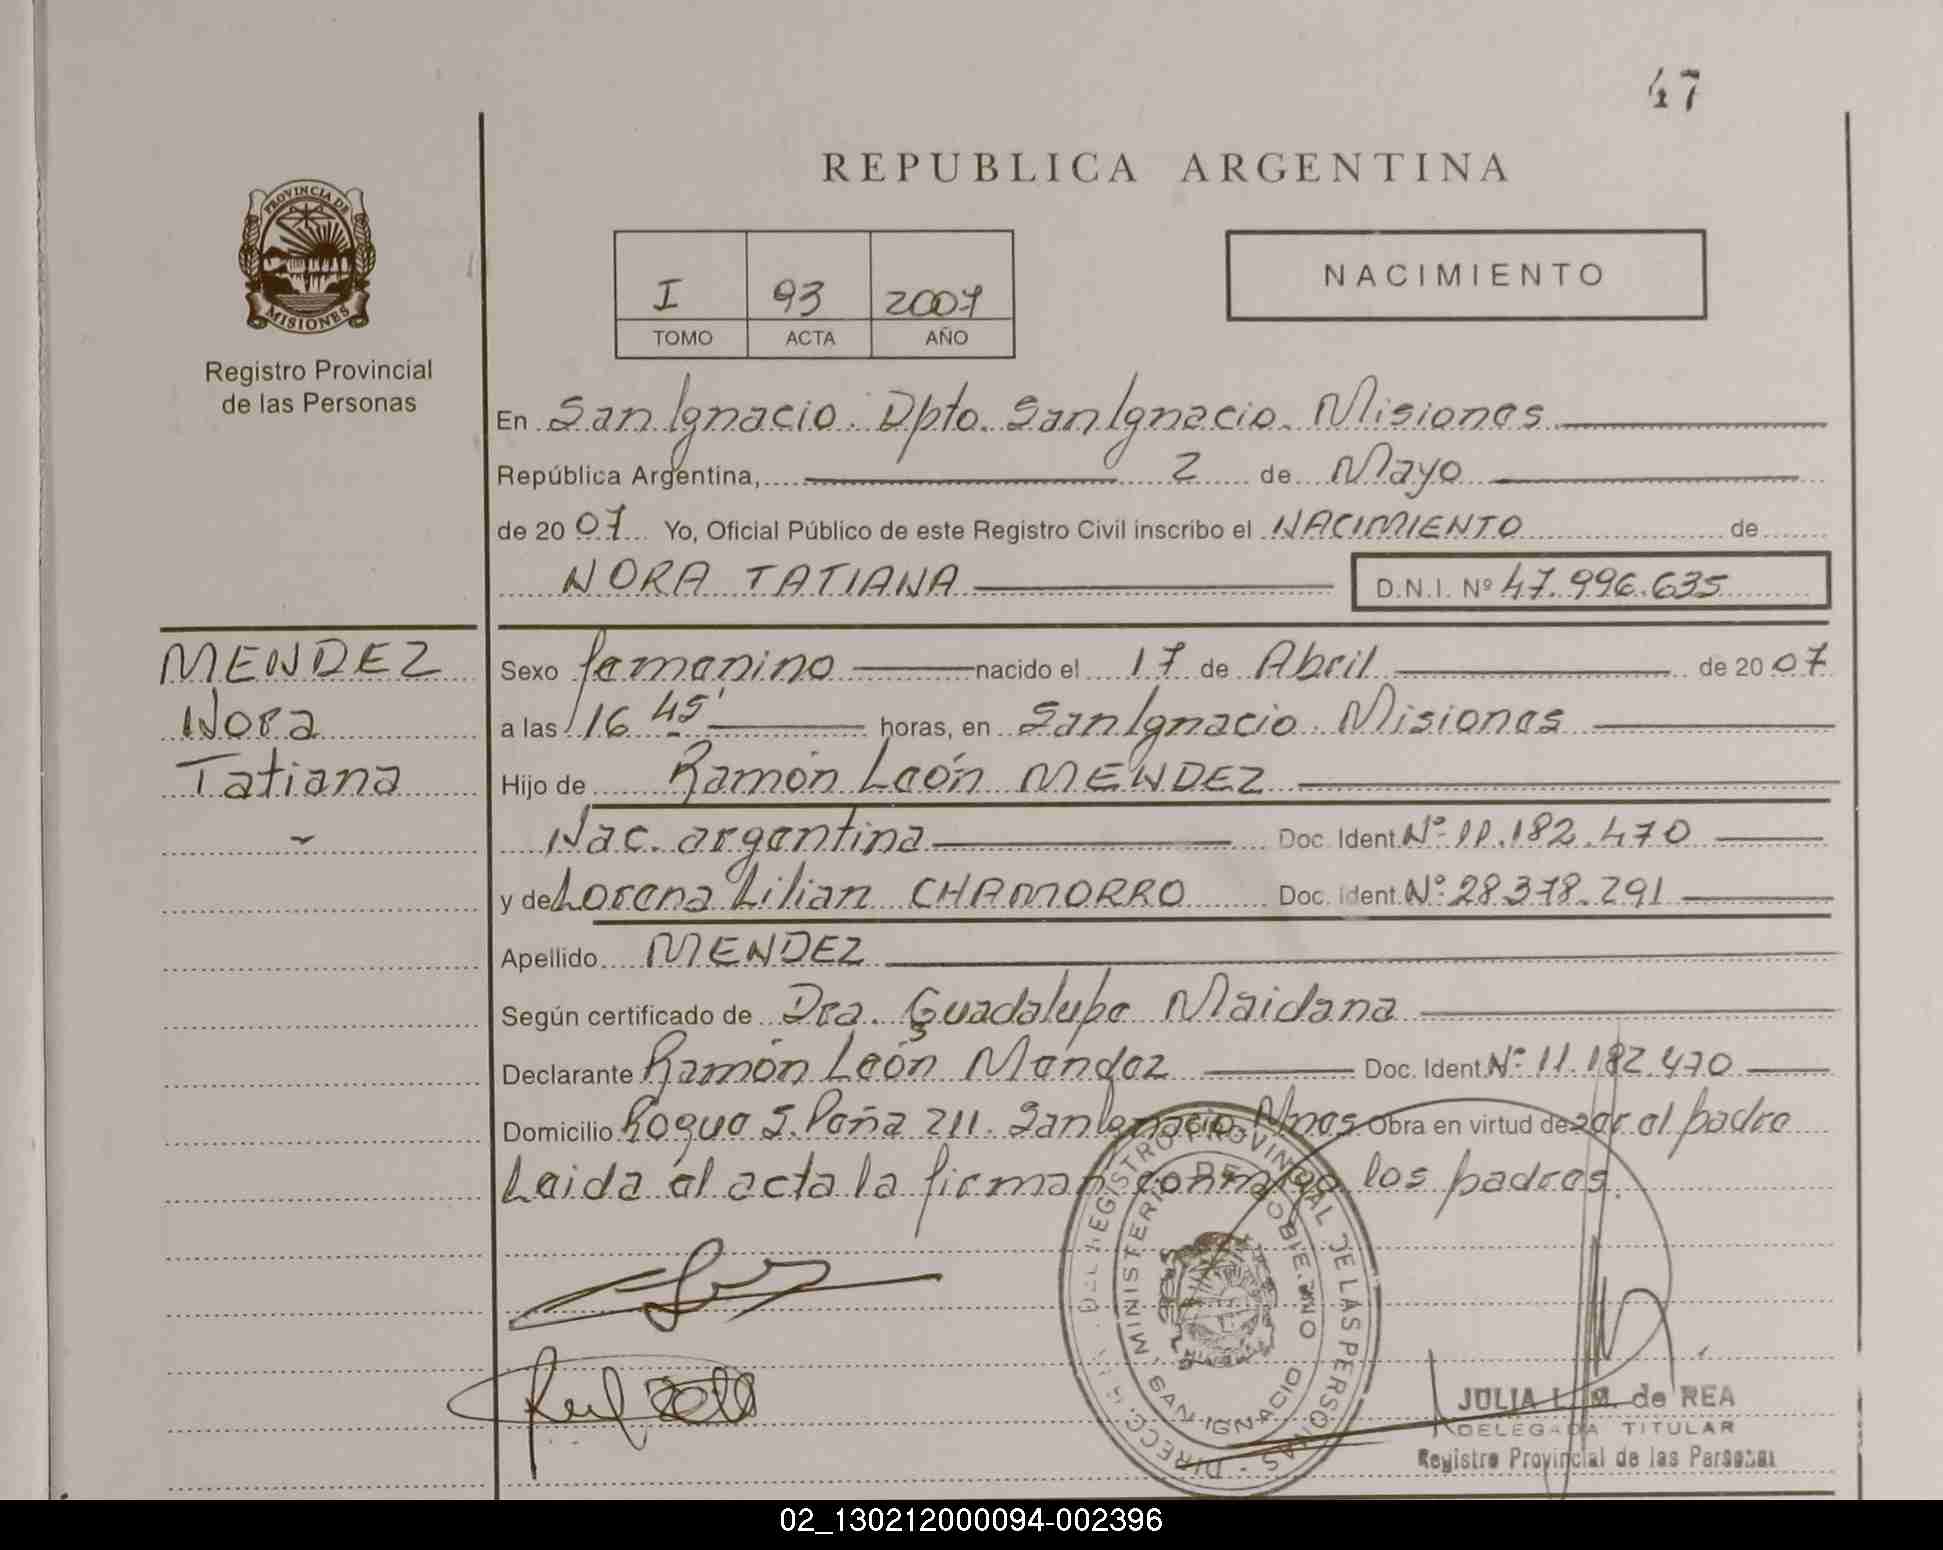 47
REPUBLICA ARGENTINA
PROVINCIA DE
MISIONES
Registro Provincial
de las Personas
I 93 2007
TOMO ACTA AÑO
NACIMIENTO
En San Ignacio. Dpto. San Ignacio. Misiones
República Argentina, 2 de Mayo
de 2007 Yo, Oficial Público de este Registro Civil inscribo el NACIMIENTO de
NORA TATIANA D.N.I. Nº 47.996.635
MENDEZ
Nora
Tatiana
Sexo femenino nacido el 17 de Abril de 2007
a las 16 45' horas, en San Ignacio. Misiones
Hijo de Ramón León MENDEZ
Nac. argentina Doc. Ident. Nº 11.182.470
y de Lorena Lilian CHAMORRO Doc. Ident. Nº 28.378.291
Apellido MENDEZ
Según certificado de Dra. Guadalupe Maidana
Declarante Ramón León Méndez Doc. Ident. Nº 11.182.470
Domicilio Roque S. Peña 211. San Ignacio. Mnes. Obra en virtud de ser el padre
Leida el acta la firman conmigo los padres.
DIRECC. DEL REGISTRO PROVINCIAL DE LAS PERSONAS
MINISTERIO DE GOBIERNO
SAN IGNACIO
JULIA L. M. de REA
DELEGADA TITULAR
Registro Provincial de las Personas
02_130212000094-002396